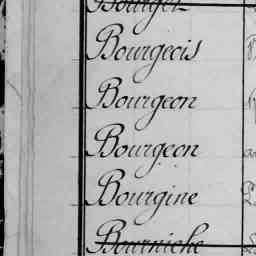 Bourget
Bourgeois
Bourgeon
Bourgeon
Bourgine
Bourniche